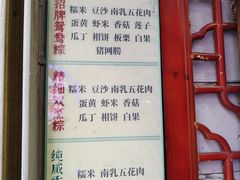 招牌鸳鸯粽
糯米 豆沙 南乳五花肉
蛋黄 虾米 香菇 莲子
瓜丁 相饼 板栗 白果
猪网膀
精细双烹粽
糯米 豆沙 南乳五花肉
蛋黄 虾米 香菇
瓜丁 相饼 白果
纯咸
糯米 南乳五花肉